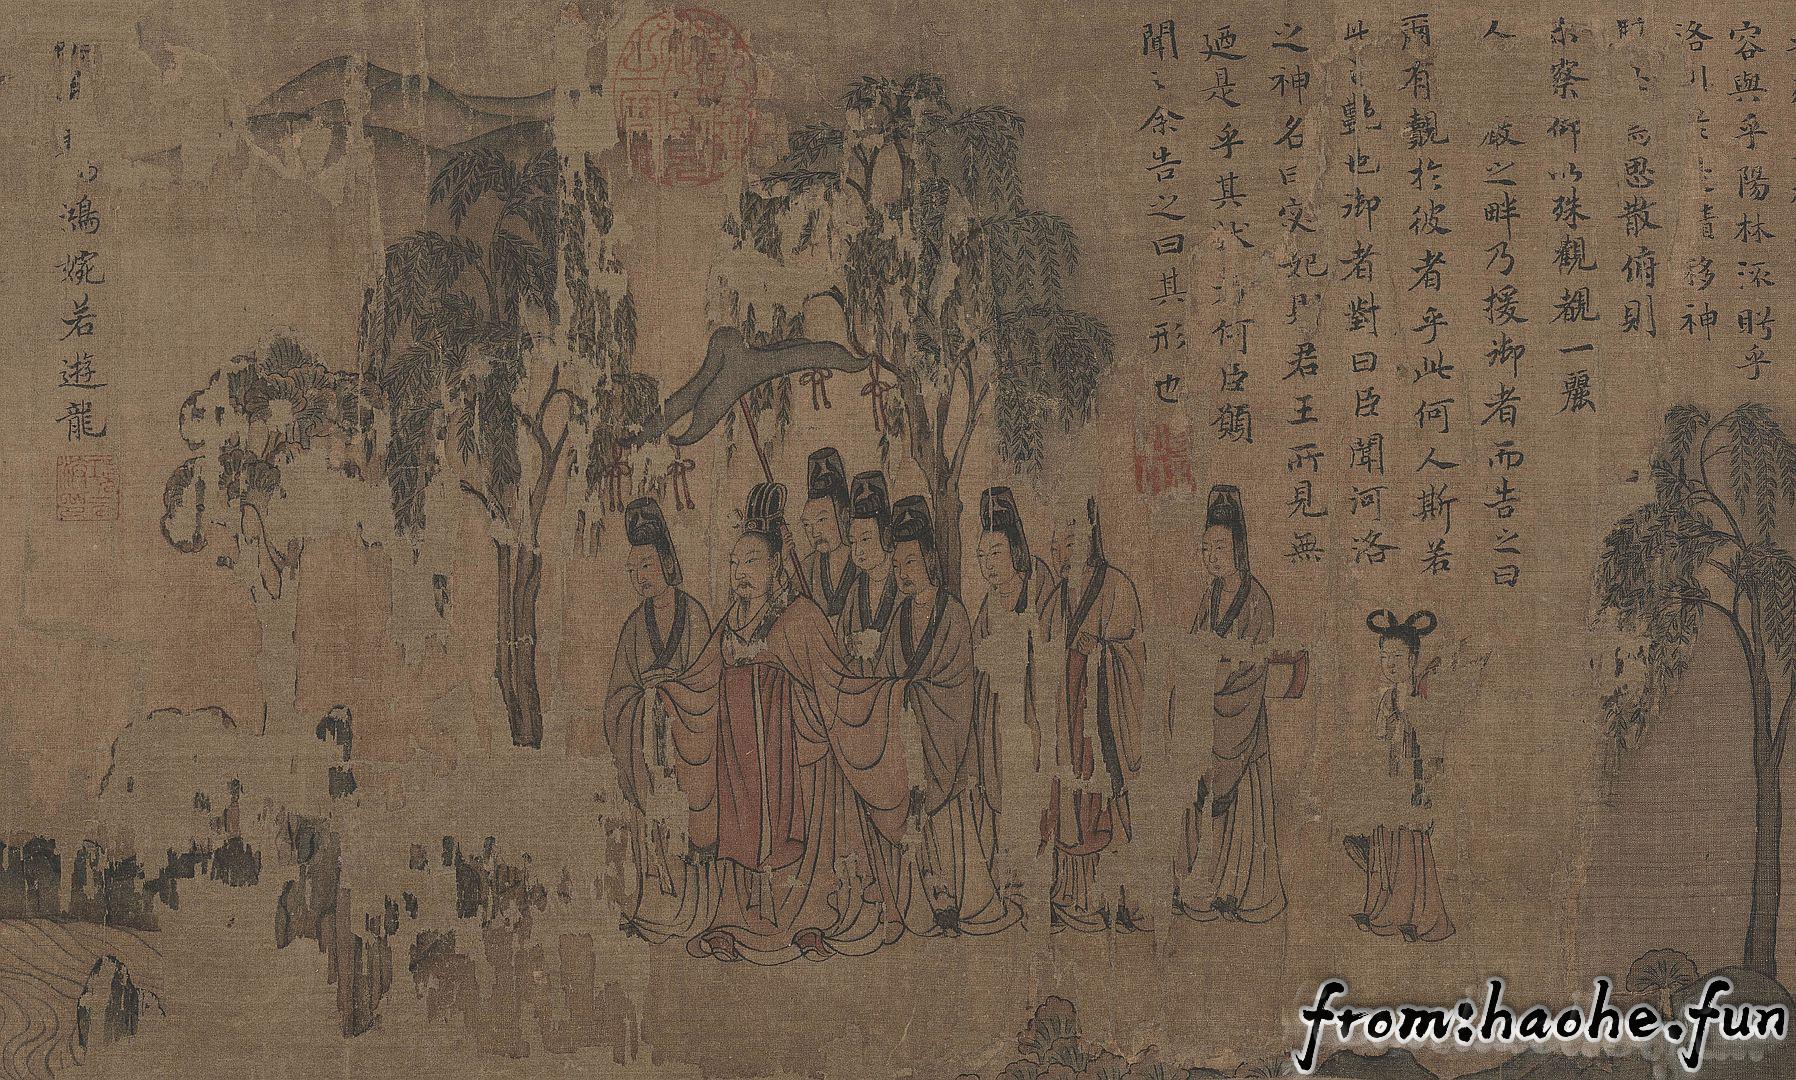 容與乎陽林流眄乎
洛川 移神
而思散俯則
未察仰以殊觀覩一麗
人 之畔乃援御者而告之曰
爾有覿於彼者乎此何人斯若
此 豔也御者對曰臣聞河洛
之神名曰宓妃 君王所見無
迺是乎其狀 何臣願
聞之余告之曰其形也
鴻婉若遊龍
from:haohe.fun